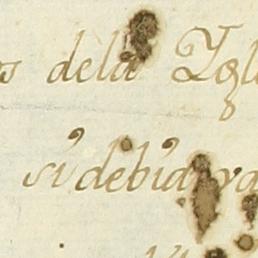 s dela Ygl
si debia va